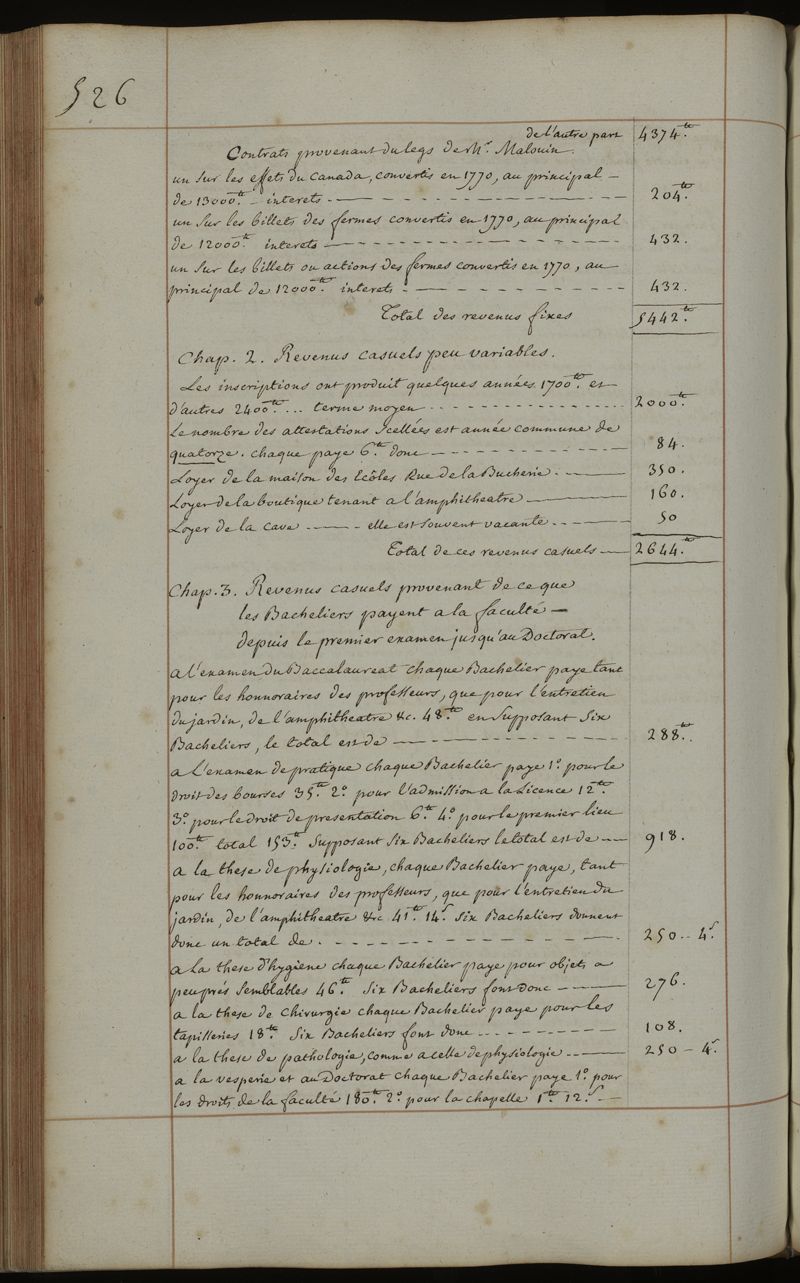 526
de l'autre part 4374.tt
Contrats provenant du legs de Mr. Malouin.
un sur les effets du Canada, convertis en 1770, au principal —
de 13000.tt — interets — 204.tt
un sur les billets des fermes convertis en 1770, au principal
de 12000.tt interets — 432.
un sur les billets ou actions des fermes convertis en 1770, au
principal de 12000.tt interets — 432.
Total des revenus fixes 5442.tt
Chap. 2. Revenus casuels peu variables.
Les inscriptions ont produit quelques années 1700.tt et
d'autres 2400.tt ... terme moyen — 2000.tt
Le nombre des attestations scellées est année commune de
quatorze. chaque paye 6.tt donc — 84.
Loyer de la maison des Ecôles Rue de la Bucherie. — 350.
Loyer de la boutique tenant a l'amphitheatre — 160.
Loyer de la cave — elle est souvent vacante — 50
Total de ces revenus casuels — 2644.tt
Chap. 3. Revenus casuels provenant de ce que
les Bacheliers payent a la faculté —
depuis le premier examen jusqu'au Doctorat.
a l'examen du Baccalaureat chaque Bachelier paye tant
pour les honnoraires des professeurs, que pour l'entretien
du jardin, de l'amphitheatre &c. 48.tt en supposant six
Bacheliers, le total est de — 288.tt
a L'examen de pratique chaque Bachelier paye 1.o pour le
droit des bourses 35.tt 2.o pour l'admission a la Licence 12.tt
3.o pour le droit de presentation 6.tt 4.o pour le premier lieu
100.tt total 153.tt supposant six Bacheliers le total est de — 918.
a la these de physiologie, chaque Bachelier paye, tant
pour les honnoraires des professeurs, que pour l'entretien du
jardin, de l'amphitheatre &c 41.tt 14.s six Bacheliers donnent
donc un total de. — 250 — 4.s
a la these d'hygiene chaque Bachelier paye pour objets a
peu prés semblables 46.tt six Bacheliers font donc — 276.
a la these de chirurgie chaque Bachelier paye pour les
tapisseries 18.tt six Bacheliers font donc — 108.
a la these de pathologie, comme a celle de physiologie — 250 — 4.s
a la vesperie et au Doctorat chaque Bachelier paye 1.o pour
les droits de la faculté 180.tt 2.o pour la chapelle 1.tt 12.s —